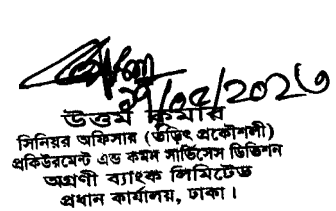 ২৭/০৫/২০২৩
উত্তম কুমার
সিনিয়র অফিসার (তড়িৎ প্রকৌশলী)
প্রকিউরমেন্ট এন্ড কমন সার্ভিসেস ডিভিশন
অগ্রণী ব্যাংক লিমিটেড
প্রধান কার্যালয়, ঢাকা।